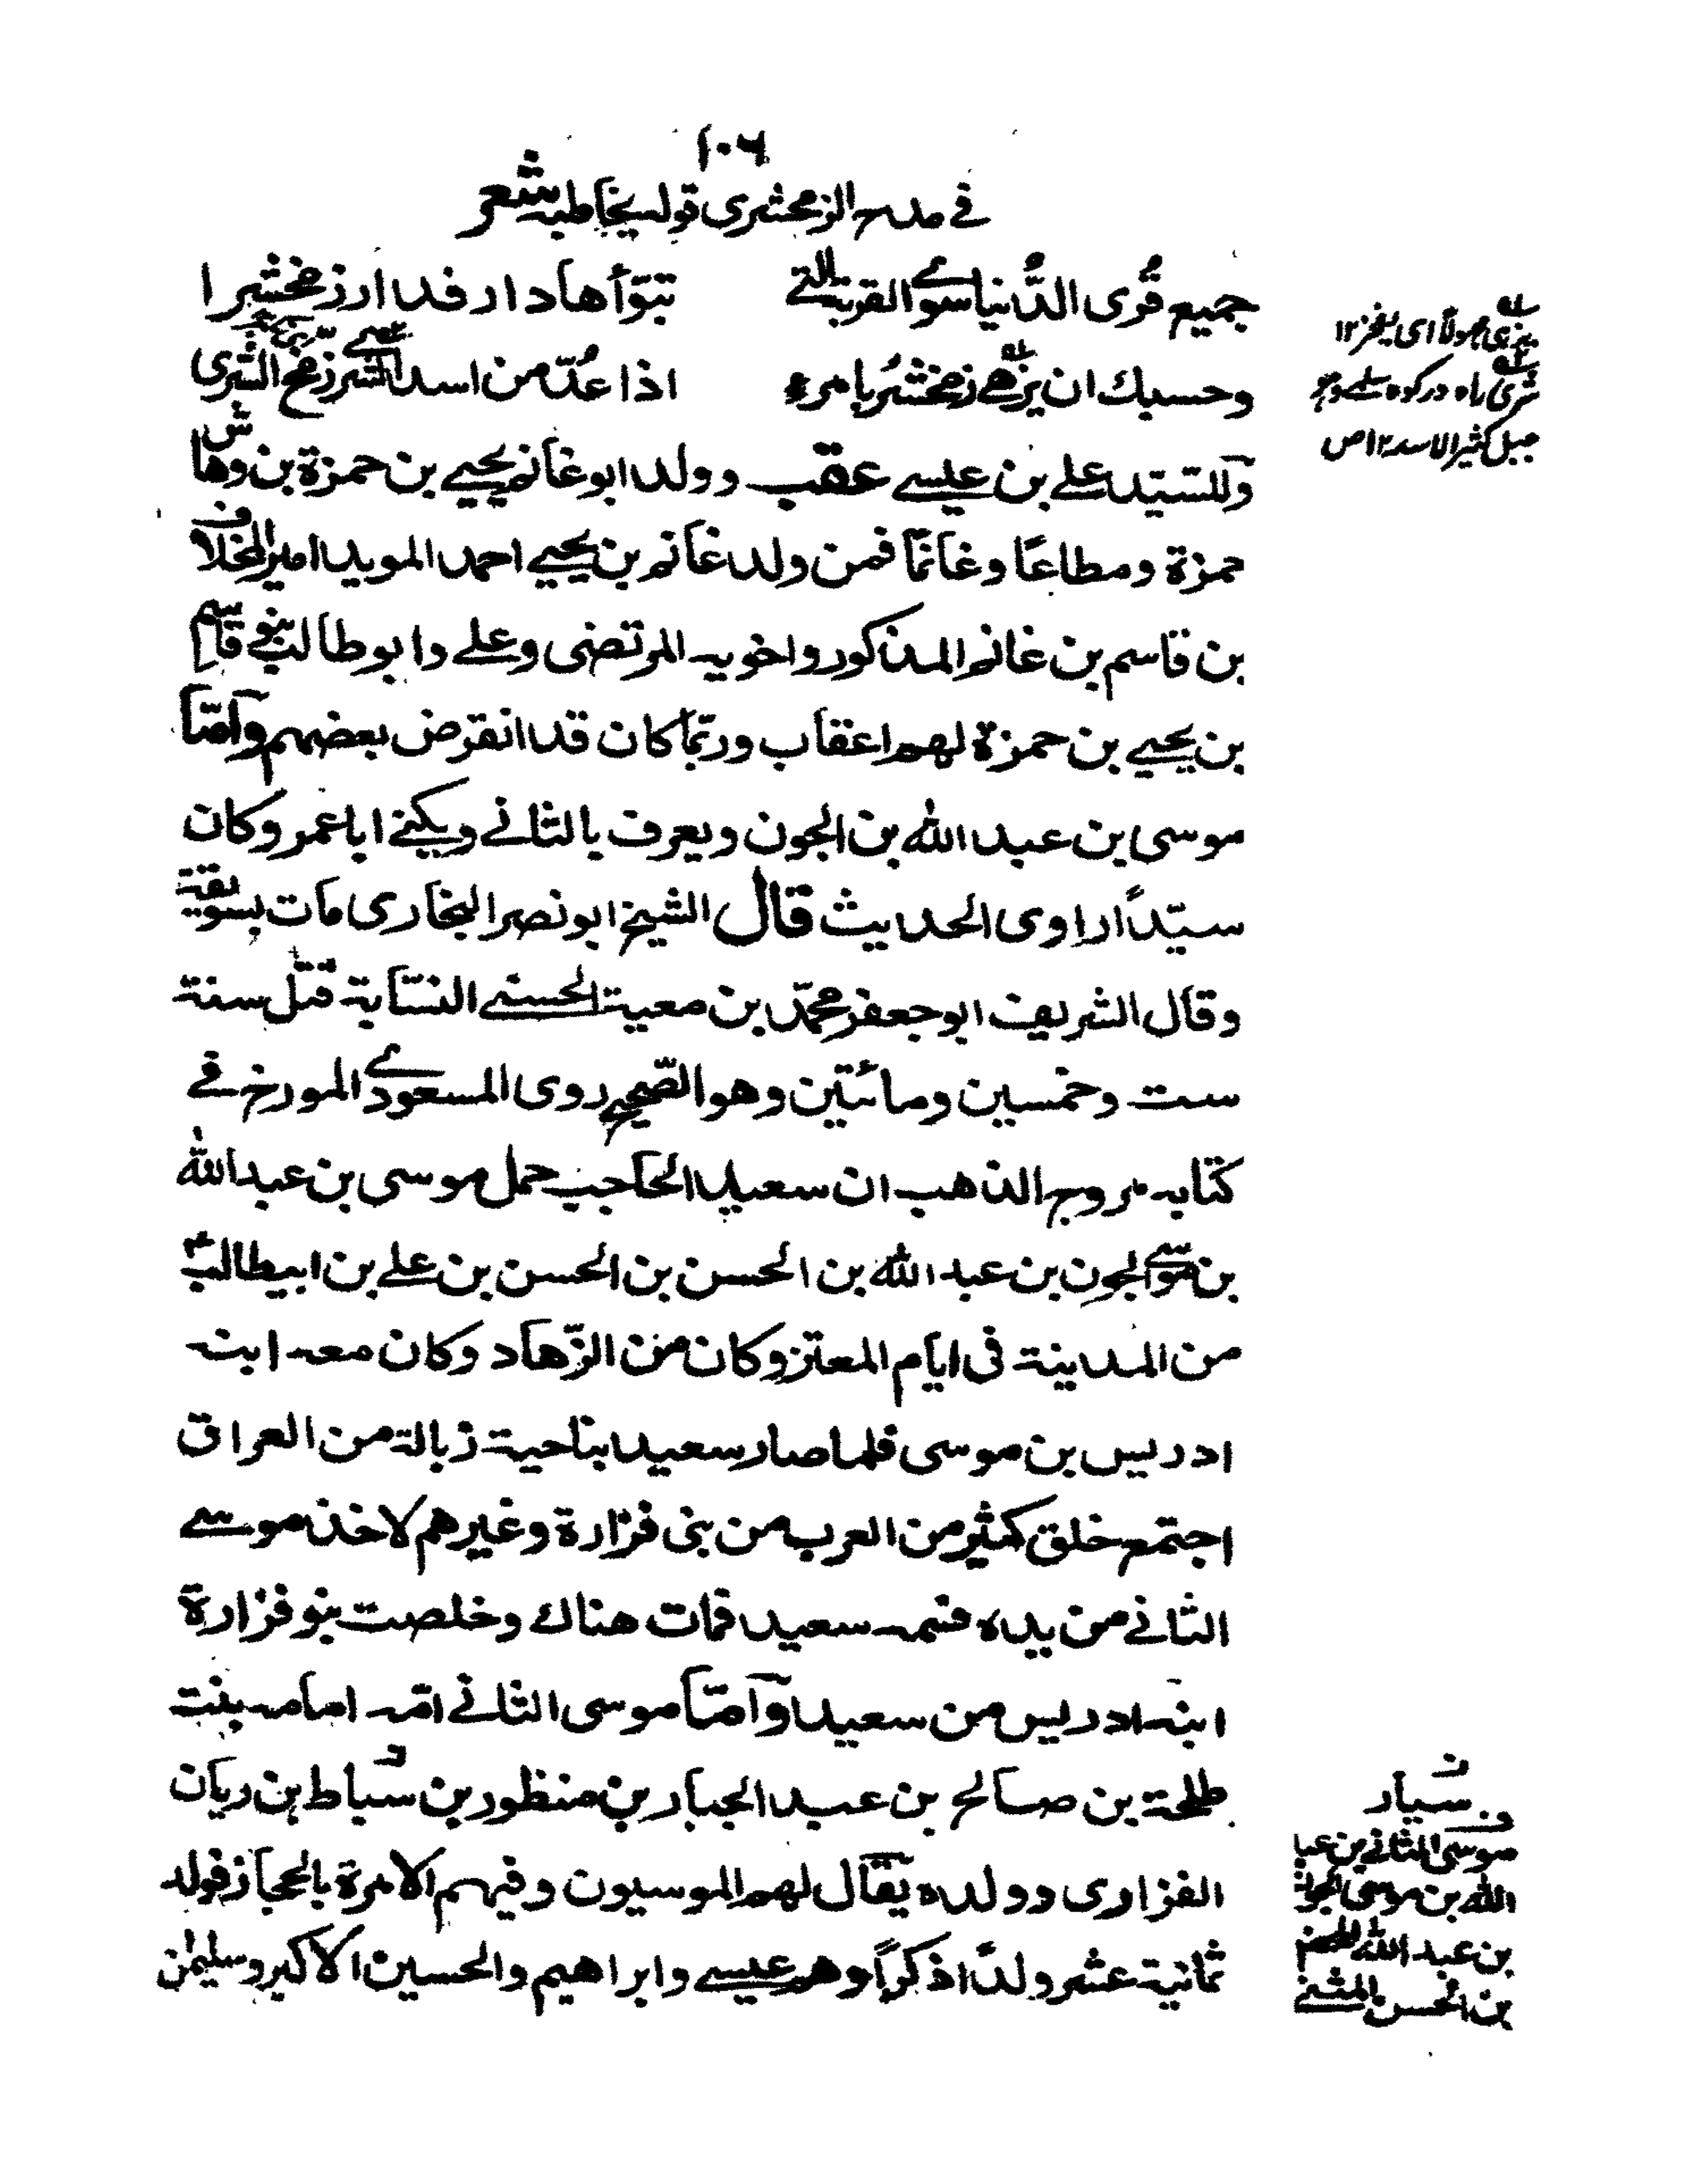 ١٠٦
في مدح الزمخشرى قوله يخاطبه شعر
جميع قُرى الدُّنيا سوے القرية التے تبوّأها دارا فداء زمخشرا
وحسبك ان يزهے زمخشرُ بامرء اذا عُدّ من اسد الشرے زمخ الشرى
وللسّيّد علے بن عيسے عقب وولد ابو غانم يحيے بن حمزة بن وهاس
حمزة ومطاعًا وغانمًا فمن ولد غانم بن يحيے احمد المويد امير المخلاف
بن قاسم بن غانم المذكور واخويه المرتضى وعلے وابو طالب بنو قاسم
بن يحيے بن حمزة لهم اعقاب وربّما كان قد انقرض بعضهم وآمّا
موسى بن عبد الله بن الجون ويعرف بالثانے ويكنے ابا عمر وكان
سيّدًا راوى الحديث قال الشيخ ابو نصر البخارى مات بسويقة
وقال الشريف ابو جعفر محمّد بن معية الحسنے النسّابة قتل سنة
ست وخمسين ومائتين وهو الصّحيح روى المسعودے المورخ في
كتابه مروج الذهب ان سعيد الحاجب حمل موسى بن عبد الله
بن موسے الجون بن عبد الله بن الحسن بن الحسن بن علے بن ابيطالبؑ
من المدينة فى ايّام المعتز وكان من الزّهاد وكان معه ابنه
ادريس بن موسى فلما صار سعيد بناحية زبالة من العراق
اجتمع خلق كثير من العرب من بنى فزارة وغيرهم لاخذ موسے
الثانے من يده فسمه سعيد فمات هناك وخلصت بنو فزارة
ابنه ادريس من سعيد وآمّا موسى الثانے امّه امامه بنت
طلحة بن صالح بن عبد الجبار بن منظور بن سباط بن ريان
الفزارى وولده يقال لهم الموسيون وفيهم الامرة بالحجاز فولد
ثمانية عشر ولدًا ذكرًا وهم عيسے وابراهيم والحسين الاكبر وسليمٰن
يزهى مجهولاً اى يفخر ١٢
شرى راه در كوه سلمے وهو
جبل كثير الاسد ١٢ ص
ن
سيار
موسى الثانے بن عبد
الله بن موسى الجون
بن عبد الله المحض
بن الحسن المثنے